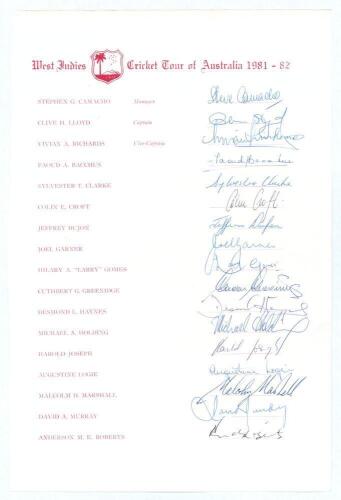 West Indies Cricket Tour of Australia 1981 - 82
STEPHEN G. CAMACHO Manager Steve Camacho
CLIVE H. LLOYD Captain
VIVIAN A. RICHARDS Vice-Captain
FAOUD A. BACCHUS Faoud Bacchus
SYLVESTER T. CLARKE Sylvester Clarke
COLIN E. CROFT Colin Croft
JEFFREY DUJON Jeffrey Dujon
JOEL GARNER Joel Garner
HILARY A. "LARRY" GOMES
CUTHBERT G. GREENIDGE
DESMOND L. HAYNES Desmond Haynes
MICHAEL A. HOLDING Michael Holding
HAROLD JOSEPH Harold Joseph
AUGUSTINE LOGIE Augustine Logie
MALCOLM D. MARSHALL Malcolm Marshall
DAVID A. MURRAY David Murray
ANDERSON M. E. ROBERTS